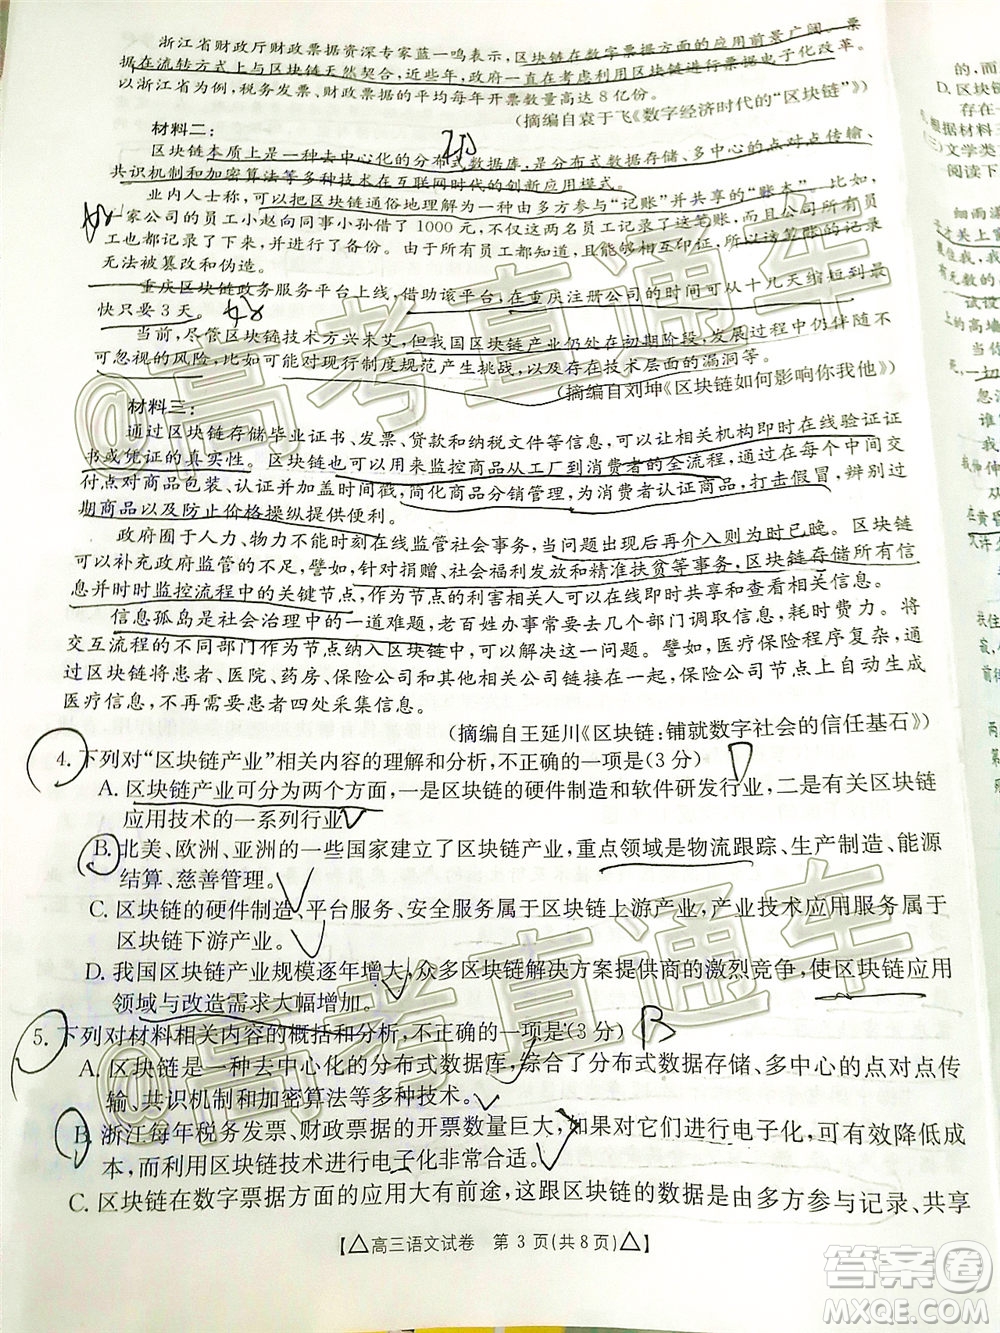 浙江省财政厅财政票据资深专家蓝一鸣表示,区块链在数字票据方面的应用前景广阔。票
据在流转方式上与区块链天然契合,近些年,政府一直在考虑利用区块链进行票据电子化改革。
以浙江省为例,税务发票、财政票据的平均每年开票数量高达8亿份。
(摘编自袁于飞《数字经济时代的“区块链”》)
材料二:
区块链本质上是一种去中心化的分布式数据库,是分布式数据存储、多中心的点对点传输、
共识机制和加密算法等多种技术在互联网时代的创新应用模式。
业内人士称,可以把区块链通俗地理解为一种由多方参与“记账”并共享的“账本”。比如,
一家公司的员工小赵向同事小孙借了1000元,不仅这两名员工记录了这笔账,而且公司所有员
工也都记录了下来,并进行了备份。由于所有员工都知道,且相互印证,所以这笔账的记录
无法被篡改和伪造。
重庆区块链政务服务平台上线,借助该平台,在重庆注册公司的时间可从十几天缩短到最
快只要3天。
当前,尽管区块链技术方兴未艾,但我国区块链产业仍处在初期阶段,发展过程中还存在不
可忽视的风险,比如可能对现行制度规范产生挑战,以及存在技术层面的漏洞等。
(摘编自刘坤《区块链如何影响你我他》)
材料三:
通过区块链存储毕业证书、发票、贷款和纳税文件等信息,可以让相关机构即时在线验证证
书或凭证的真实性。区块链也可以用来监控商品从工厂到消费者的全流程,在每个中间交易
付点对商品包装、认证并加盖时间戳,简化商品分销管理,为消费者认证商品,打击假冒,辨别过
期商品以及防止价格操纵提供便利。
政府囿于人力、物力不能时刻在线监管社会事务,当问题出现后再介入则为时已晚。区块链
可以补充政府监管的不足,譬如,针对捐赠、社会福利发放和精准扶贫等事务,区块链存储所有信
息并时时监控流程中的关键节点,作为节点的利害相关人可以即时共享和查看相关信息。
信息孤岛是社会治理中的一道难题,老百姓办事要去几个部门调取信息,耗时费力。将
交互流程的不同部门作为节点纳入区块链可以解决这一问题。譬如,医疗保险流程复杂,通过
区块链将患者、医院、药房、保险公司和其他相关公司链接在一起,保险公司节点上自动生成
医疗信息,不再需要患者四处采集信息。
(摘编自王延川《区块链:铺就数字社会的信任基石》)
4. 下列对“区块链产业”相关内容的理解和分析,不正确的一项是(3分) D
A. 区块链产业可分为两个方面,一是区块链的硬件制造和软件研发行业,二是有关区块链
应用技术的一系列行业
B. 北美、欧洲、亚洲的一些国家建立了区块链产业,重点领域是物流跟踪、生产制造、能源
结算、慈善管理。
C. 区块链的硬件制造、平台服务、安全服务属于区块链上游产业,产业技术应用服务属于
区块链下游产业。
D. 我国区块链产业规模逐年增大,众多区块链解决方案提供商的激烈竞争,使区块链应用
领域与改造需求大幅增加。
5. 下列对材料相关内容的概括和分析,不正确的一项是(3分) B
A. 区块链是一种去中心化的分布式数据库,综合了分布式数据存储、多中心的点对点传
输、共识机制和加密算法等多种技术。
B. 浙江每年税务发票、财政票据的开票数量巨大,如果对它们进行电子化,可有效降低成
本,而利用区块链技术进行电子化非常合适。
C. 区块链在数字票据方面的应用大有前途,这跟区块链是由多方参与记录、共享
【△高三语文试卷 第3页(共8页)△】
的,
D. 区块链
存在
根据材料三
(三)文学类
阅读下
@高考直通车
@高考直通车
答案圈
MXQE.COM